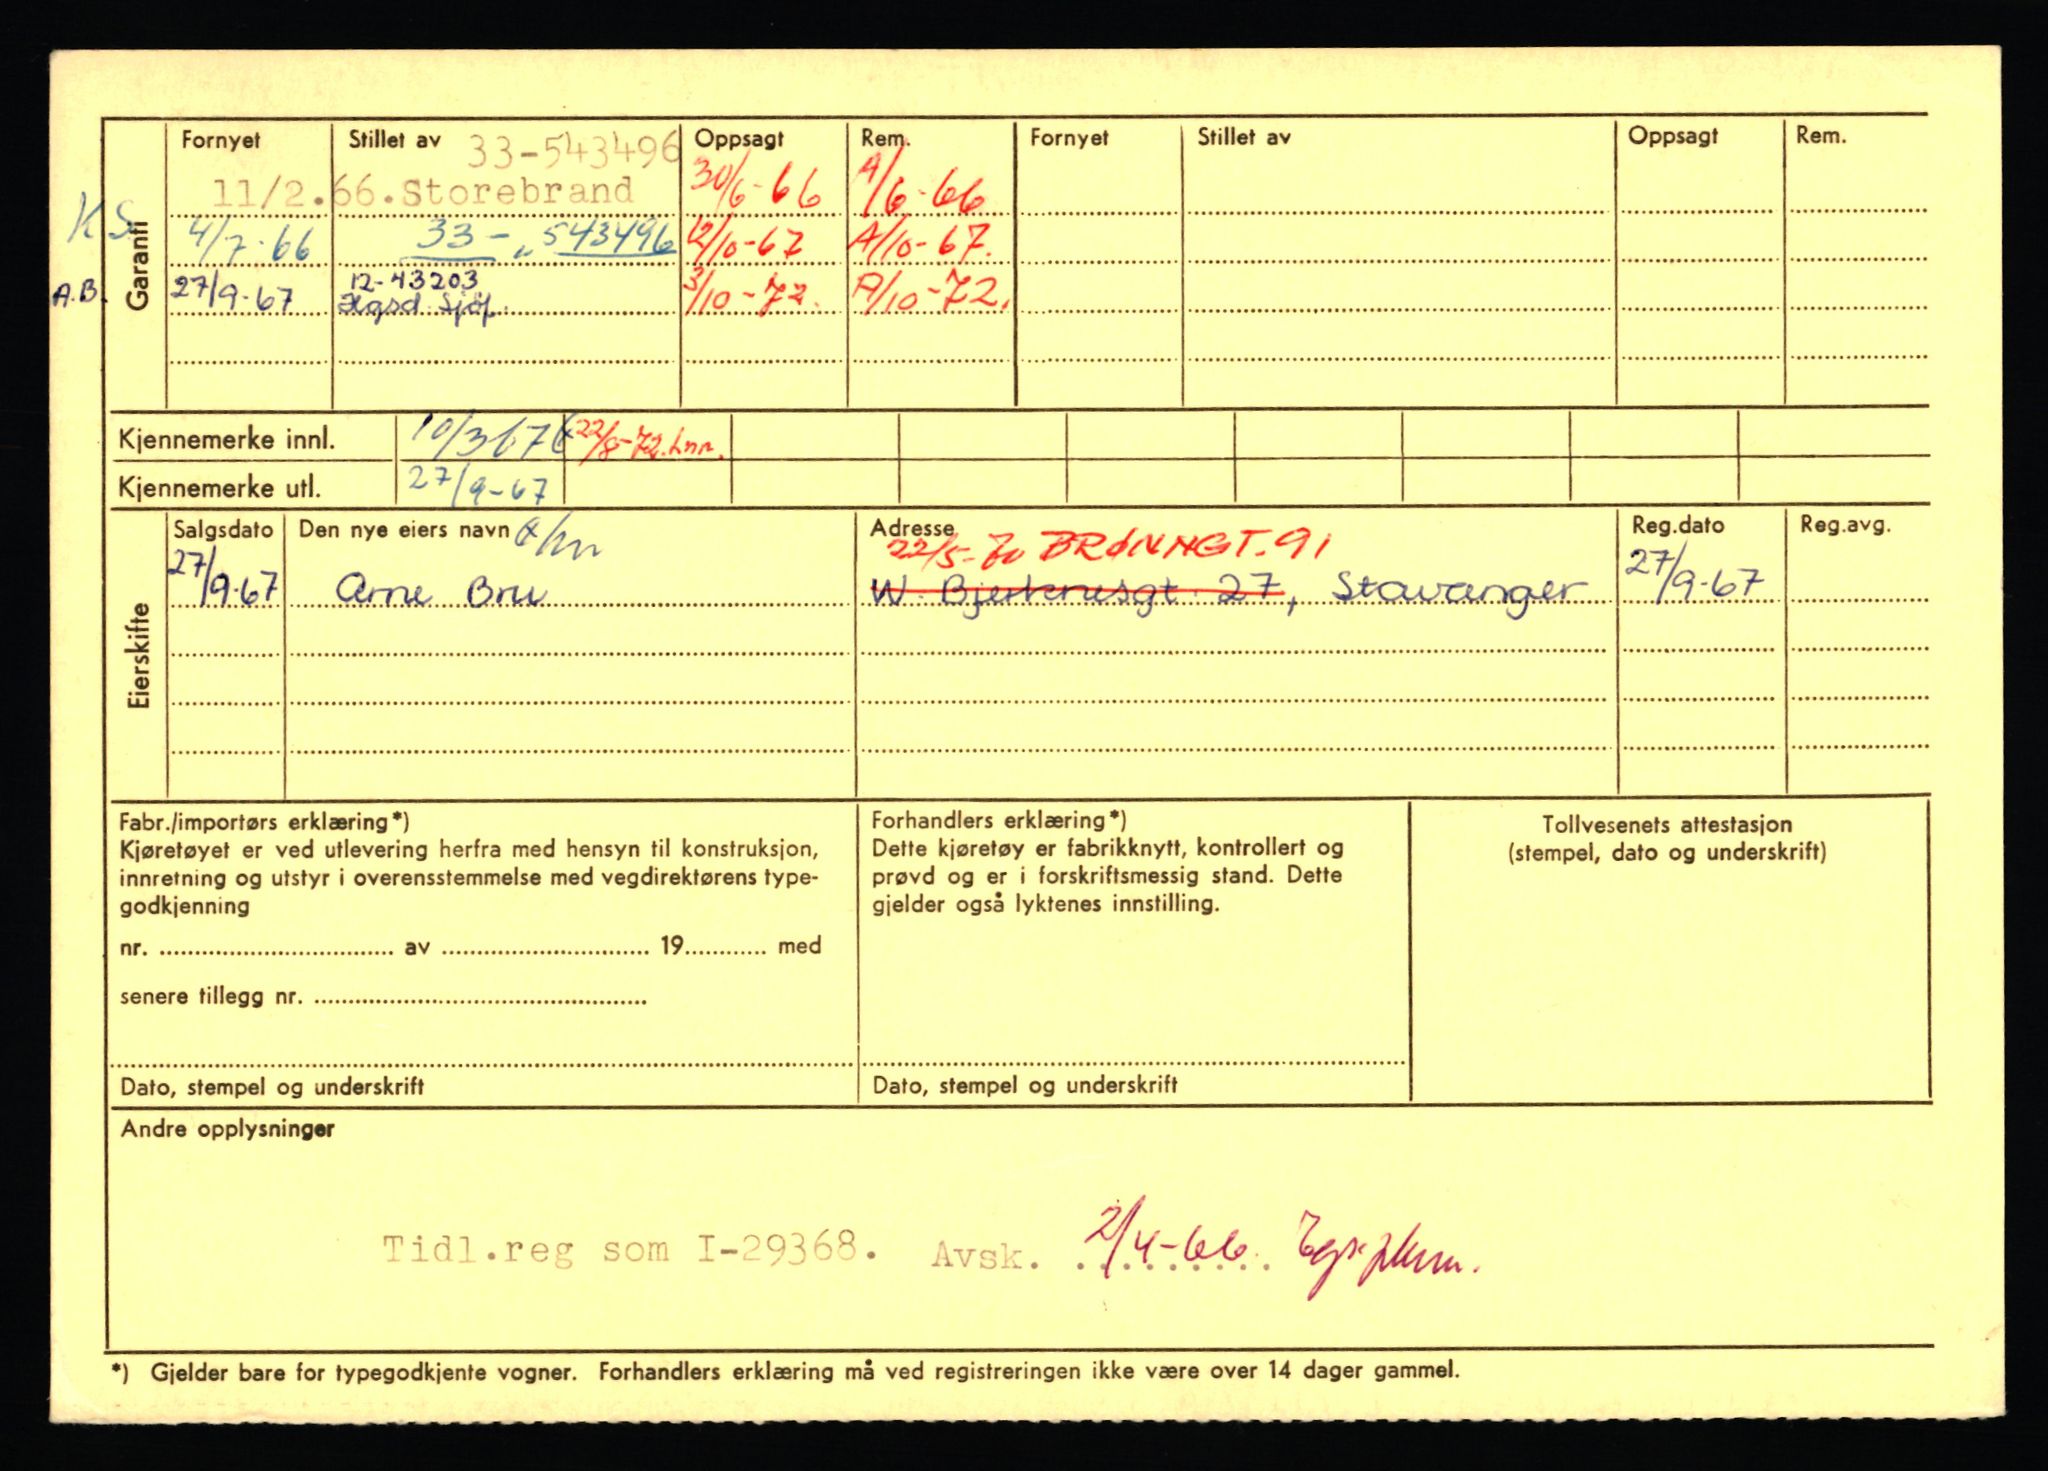 Fornyet Stillet av Oppsagt Rem. Fornyet Stillet av Oppsagt Rem.
33-543496
11/2.66. Storebrand 30/6-66 A/6-66
K S. 4/7-66 33- „ 543496 12/10-67 A/10-67.
A.B. 27/9-67 12-43203 3/10-72. A/10-72.
Sjöf.
Garanti
Kjennemerke innl. 10/3 67 22/8-72.
Kjennemerke utl. 27/9-67
Salgsdato Den nye eiers navn Adresse Reg.dato Reg.avg.
22/5-70 BRØNNGT. 91
27/9-67 Arne Bru W. Bjerknesgt. 27, Stavanger 27/9-67
Eierskifte
Fabr./importørs erklæring*)
Kjøretøyet er ved utlevering herfra med hensyn til konstruksjon,
innretning og utstyr i overensstemmelse med vegdirektørens type-
godkjenning
nr. .................. av .................. 19........ med
senere tillegg nr. ..................
Dato, stempel og underskrift
Forhandlers erklæring*)
Dette kjøretøy er fabrikknytt, kontrollert og
prøvd og er i forskriftsmessig stand. Dette
gjelder også lyktenes innstilling.
Dato, stempel og underskrift
Tollvesenets attestasjon
(stempel, dato og underskrift)
Andre opplysninger
Tidl.reg som I-29368. Avsk. 2/4-66.
*) Gjelder bare for typegodkjente vogner. Forhandlers erklæring må ved registreringen ikke være over 14 dager gammel.